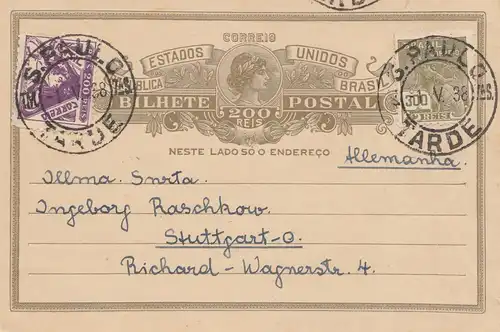 CORREIO
ESTADOS UNIDOS
BRASIL
BILHETE POSTAL
200
REIS
NESTE LADO SÓ O ENDEREÇO
200 REIS
CORREIO
S. PAULO
V. 38
TARDE
300
REIS
S. PAULO
V. 38
TARDE
Allemanha.
Illma. Snrta.
Ingeborg Raschkow.
Stuttgart-O.
Richard-Wagnerstr. 4.